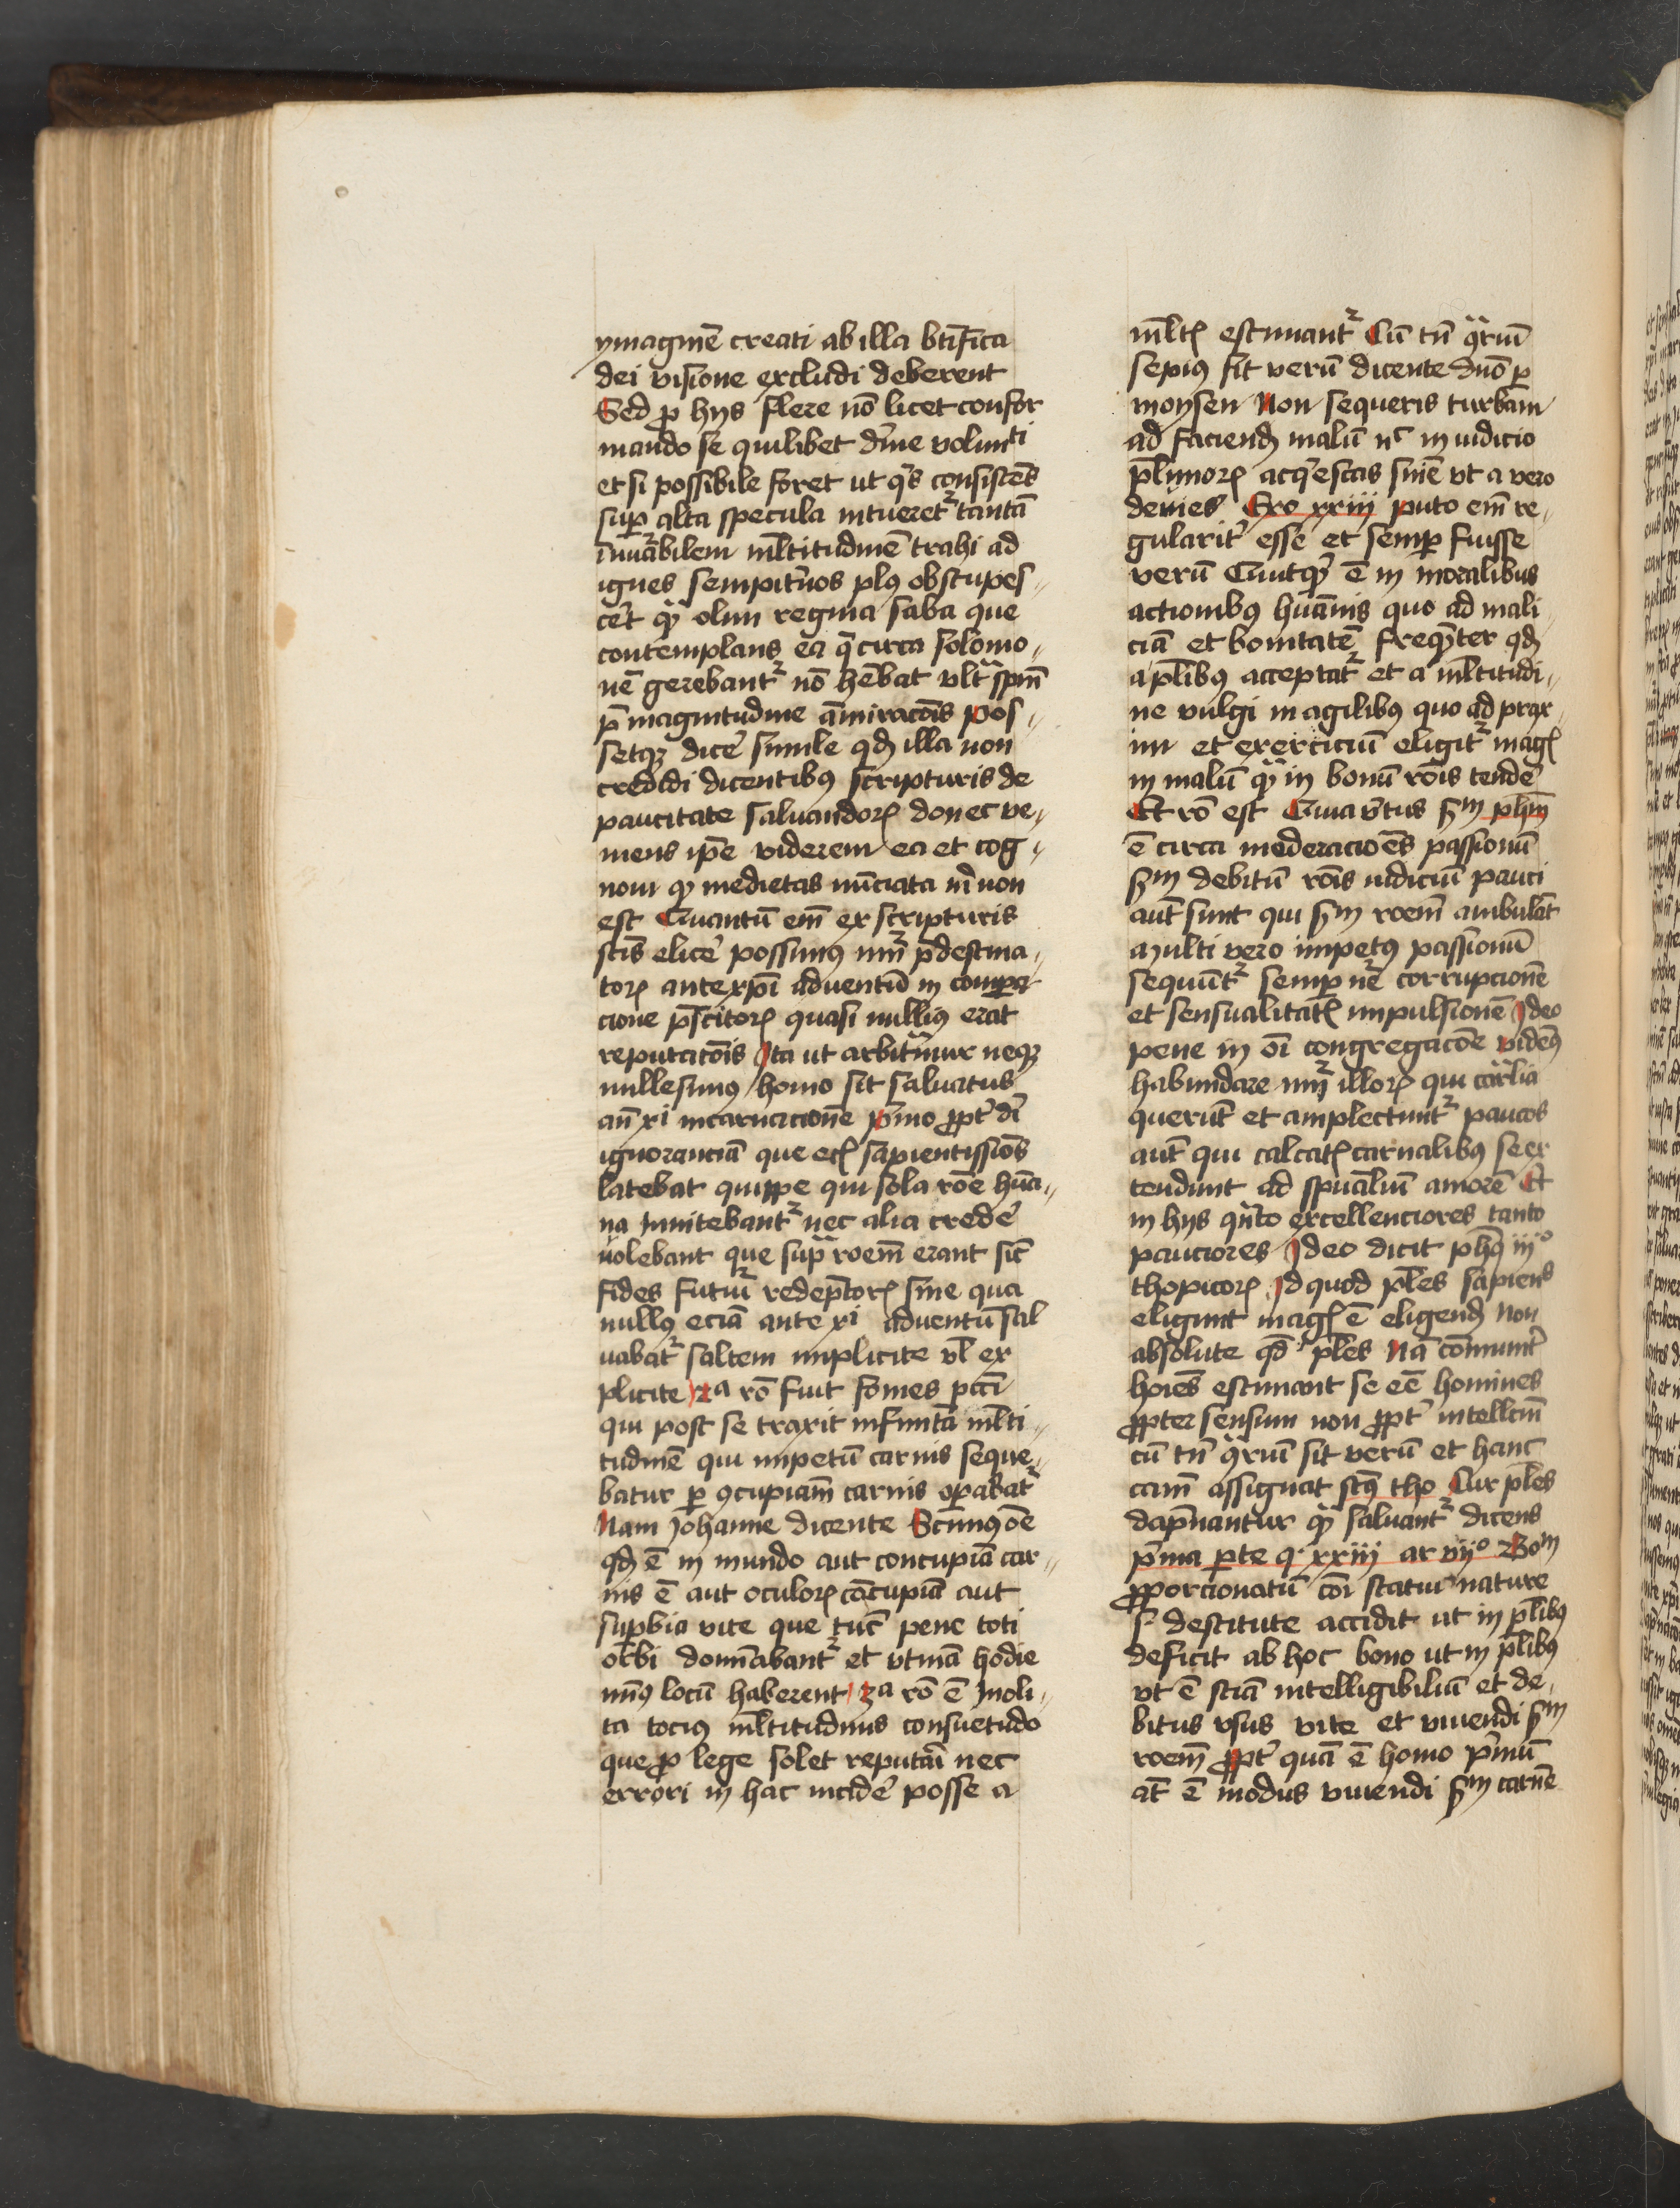 ymaginē creati ab illa btīfica
dei visione excludi deberent
Sed ꝓ hys flere nō licet confor
mando se quilibet dīne volunti
et si possibile foret ut qis consistēs
suꝑ alta specula intueret᷑ tantā
īnuābilem mltitudinē trahi ad
ignes sempit̉nos plꝰ obstupes〃
cēt qͣꝫ olim regina saba que
contemplans ea q̄ circa solomo〃
nē gerebant᷑ nō hēbat vltͣ spm̄
p̄ magnitudine am̄iracōis Pos〃
setqꝫ dicē simile qd̄ illa non
credidi dicentibꝰ scripturis de
paucitate saluandoꝝ donec ve〃
niens ip̄e viderem ea et cog〃
noui qꝫ medietas nūciata m̄ non
est Quantū em̄ ex scripturis
scīs elicē possimꝰ nūꝰ p̄destina〃
toꝝ ante xp̄i aduentū in compa
cione p̄scitoꝝ quasi nulliꝰ erat
reputacōis Ita ut arbitͣmur neqꝫ
millesimꝰ homo sit saluatus
an̄ xi incarnacionē pͥmo ꝓpt̉ dī
ignoranciā que etꝭ sapientissiōs
latebat quippe qui sola rōe hūa〃
na Innitebant᷑ nec alia credē
uolebant que supͣ roēm erant sic̄
fides futuri redeptoꝝ sine qua
nullꝰ eciā ante xi aduentū sal
uabat᷑ saltem implicite vl̄ ex
plicite 2a rō fuit fomes pctī
qui post se traxit infinitā mlti〃
tudinē qui impetū carnis seque〃
batur ꝑ ꝯcupiam̄ carnis oꝑabat᷑
Nam Johanne dicente Scimꝰ oē
qd̄ ē in mundo aut concupiā car〃
nis ē aut oculoꝝ cōcupiā aut
supbia vite que tūc pene toti
orbi domīabant᷑ et vtinā hodie
minꝰ locū haberent 3a rō ē Inoli〃
ta tociꝰ mltitudinis consuetudo
que ꝓ lege solet reputari nec
errori in hac incidē posse a
mltꝭ estimant᷑ Cū tn̄ qͣriū
sepiꝰ sit verū dicente dn̄o ꝑ
moysen Non sequeris turbam
ad faciend̄ malū nc̄ in iudicio
pl̄imoꝝ acqͥescas sniē vt a vero
deuies Exo xxiij puto em̄ re〃
gularit̉ esse et semꝑ fuisse
verū Cuutqꝫ ē in moralibus
actionibꝰ huānis quo ad mali〃
ciā et bonitatē freqn̄ter qd̄
a pl̄ibꝰ acceptat᷑ et a mltitudi〃
ne vulgi in agilibꝰ quo ad prax〃
im et exerciciū eligit᷑ magꝭ
in malū qͣꝫ in bonū rōis tendē
Et rō est Quia v̉tus sm̄ ph̄m
ē circa moderacioēs passionū
sm̄ debitū rōis iudiciū pauci
aut̄ sunt qui sm̄ roēm ambulāt
Multi vero impetꝰ passionū
sequūt᷑ semꝑ nē corrupcionē
et sensualitatꝭ impulsionē Ideo
pene in oī congregacōe videmꝰ
habundare nūꝰ illoꝝ qui carͣlia
querūt et amplectunt᷑ paucos
aut̄ qui calcatꝭ carnalibꝰ se ex
tendunt ad spūaliū amorē Et
in hys qn̄to excellenciores tanto
pauciores Ideo dicit ph̄s iijo
thopicoꝝ Id quod pl̄es sapiens
eligunt magꝭ ē eligend̄ Non
absolute qd̄ pl̄es Nā cōmunit̉
hoies estimant se eē homines
ꝓpter sensum non ꝓpt̉ intellcm̄
cū tn̄ qͣriū sit verū et hanc
cam̄ assignat scs̄ tho Cur pl̄es
dapnantur qͣꝫ saluant᷑ dicens
pͥma ꝑte q. xxiij ar vijo Bom
ꝓporcionatū cōi statui nature
s destitute accidit ut in pl̄ibꝰ
deficit ab hoc bono ut in pl̄ibꝰ
vt ē sciā intelligibiliū et de〃
bitus vsus vite et viuendi sm̄
roēm ꝓpt̉ quā ē homo pͥmū
at̄ ē modus viuendi sm̄ carnē